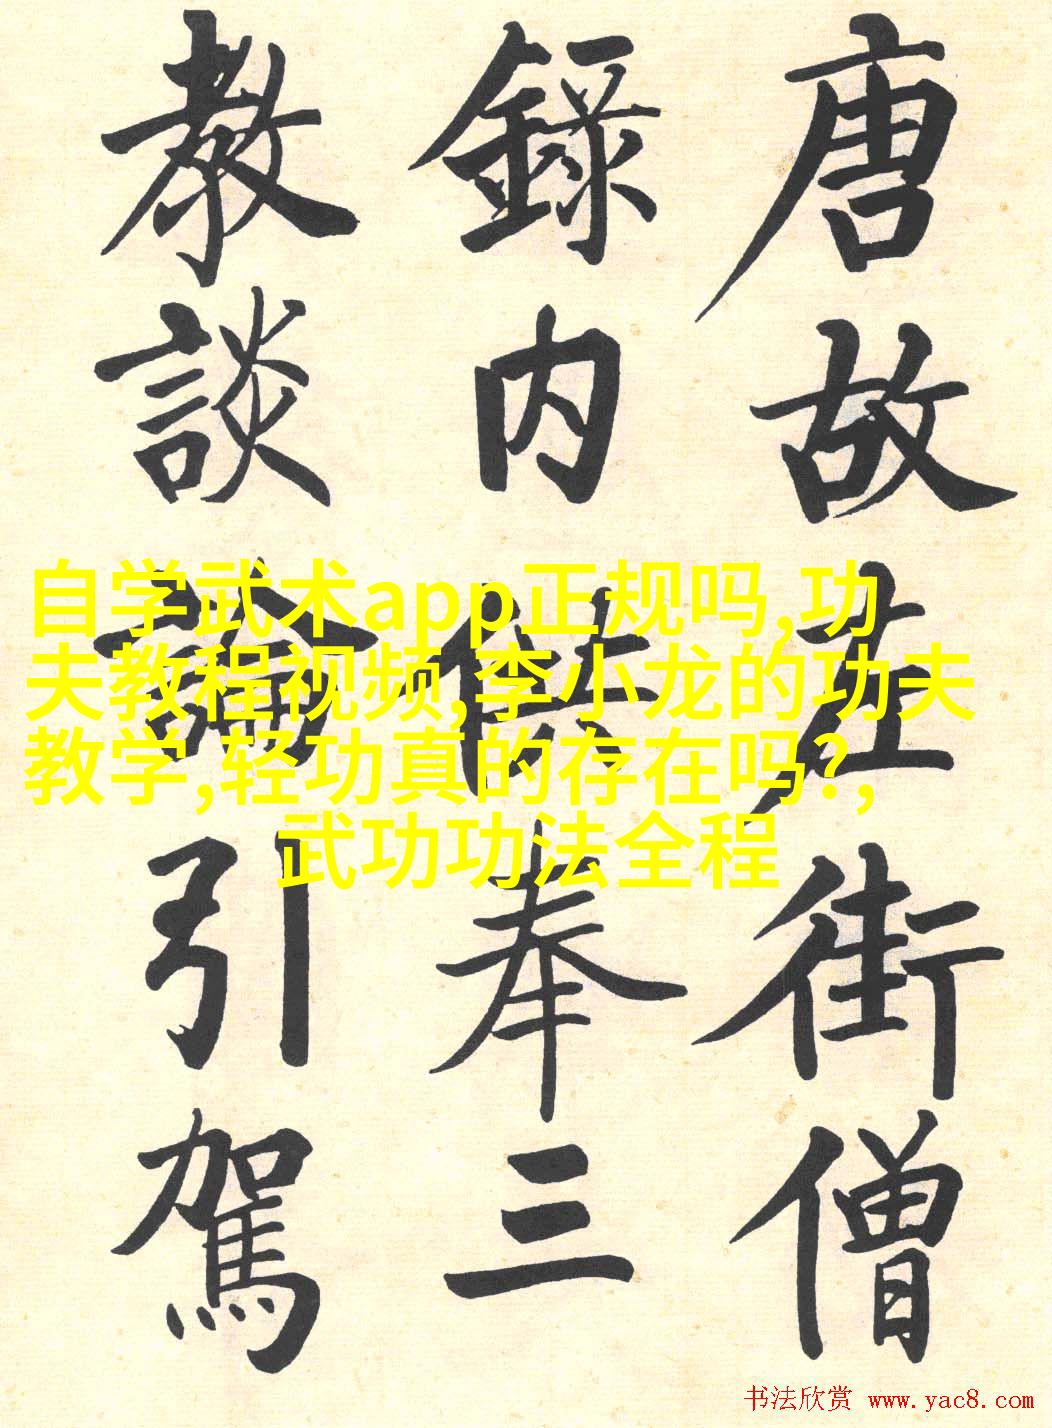 唐故左街僧
錄内供奉三
教談論引駕
自学武术app正规吗,功
夫教程视频,李小龙的功夫
教学,轻功真的存在吗?,
武功功法全程
书法欣赏 www.yac8.com